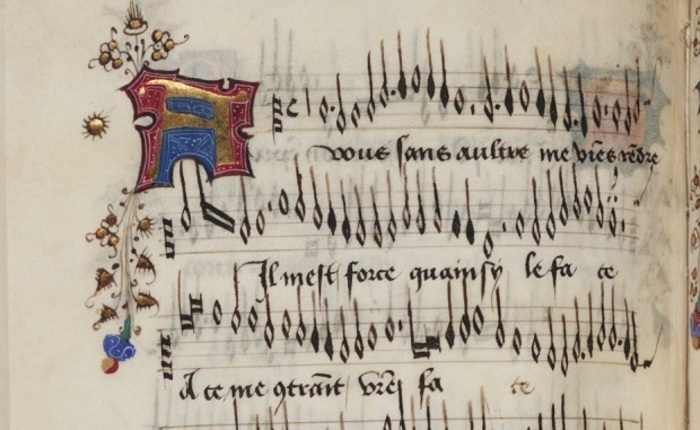 A vous sans aultre me viēs rēdre
Il mest force quainsy le fa ce
A ce me ꝯtraīt vrē fa ce